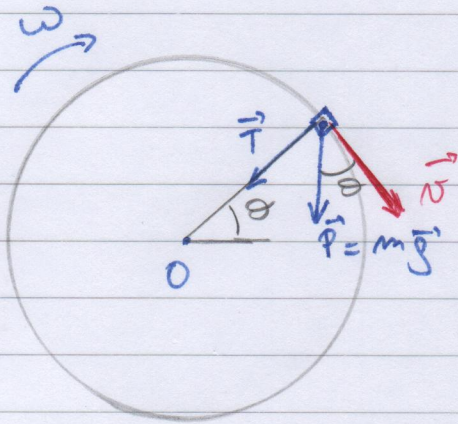 ω
T⃗
θ
θ
v⃗
P⃗ = m g⃗
O